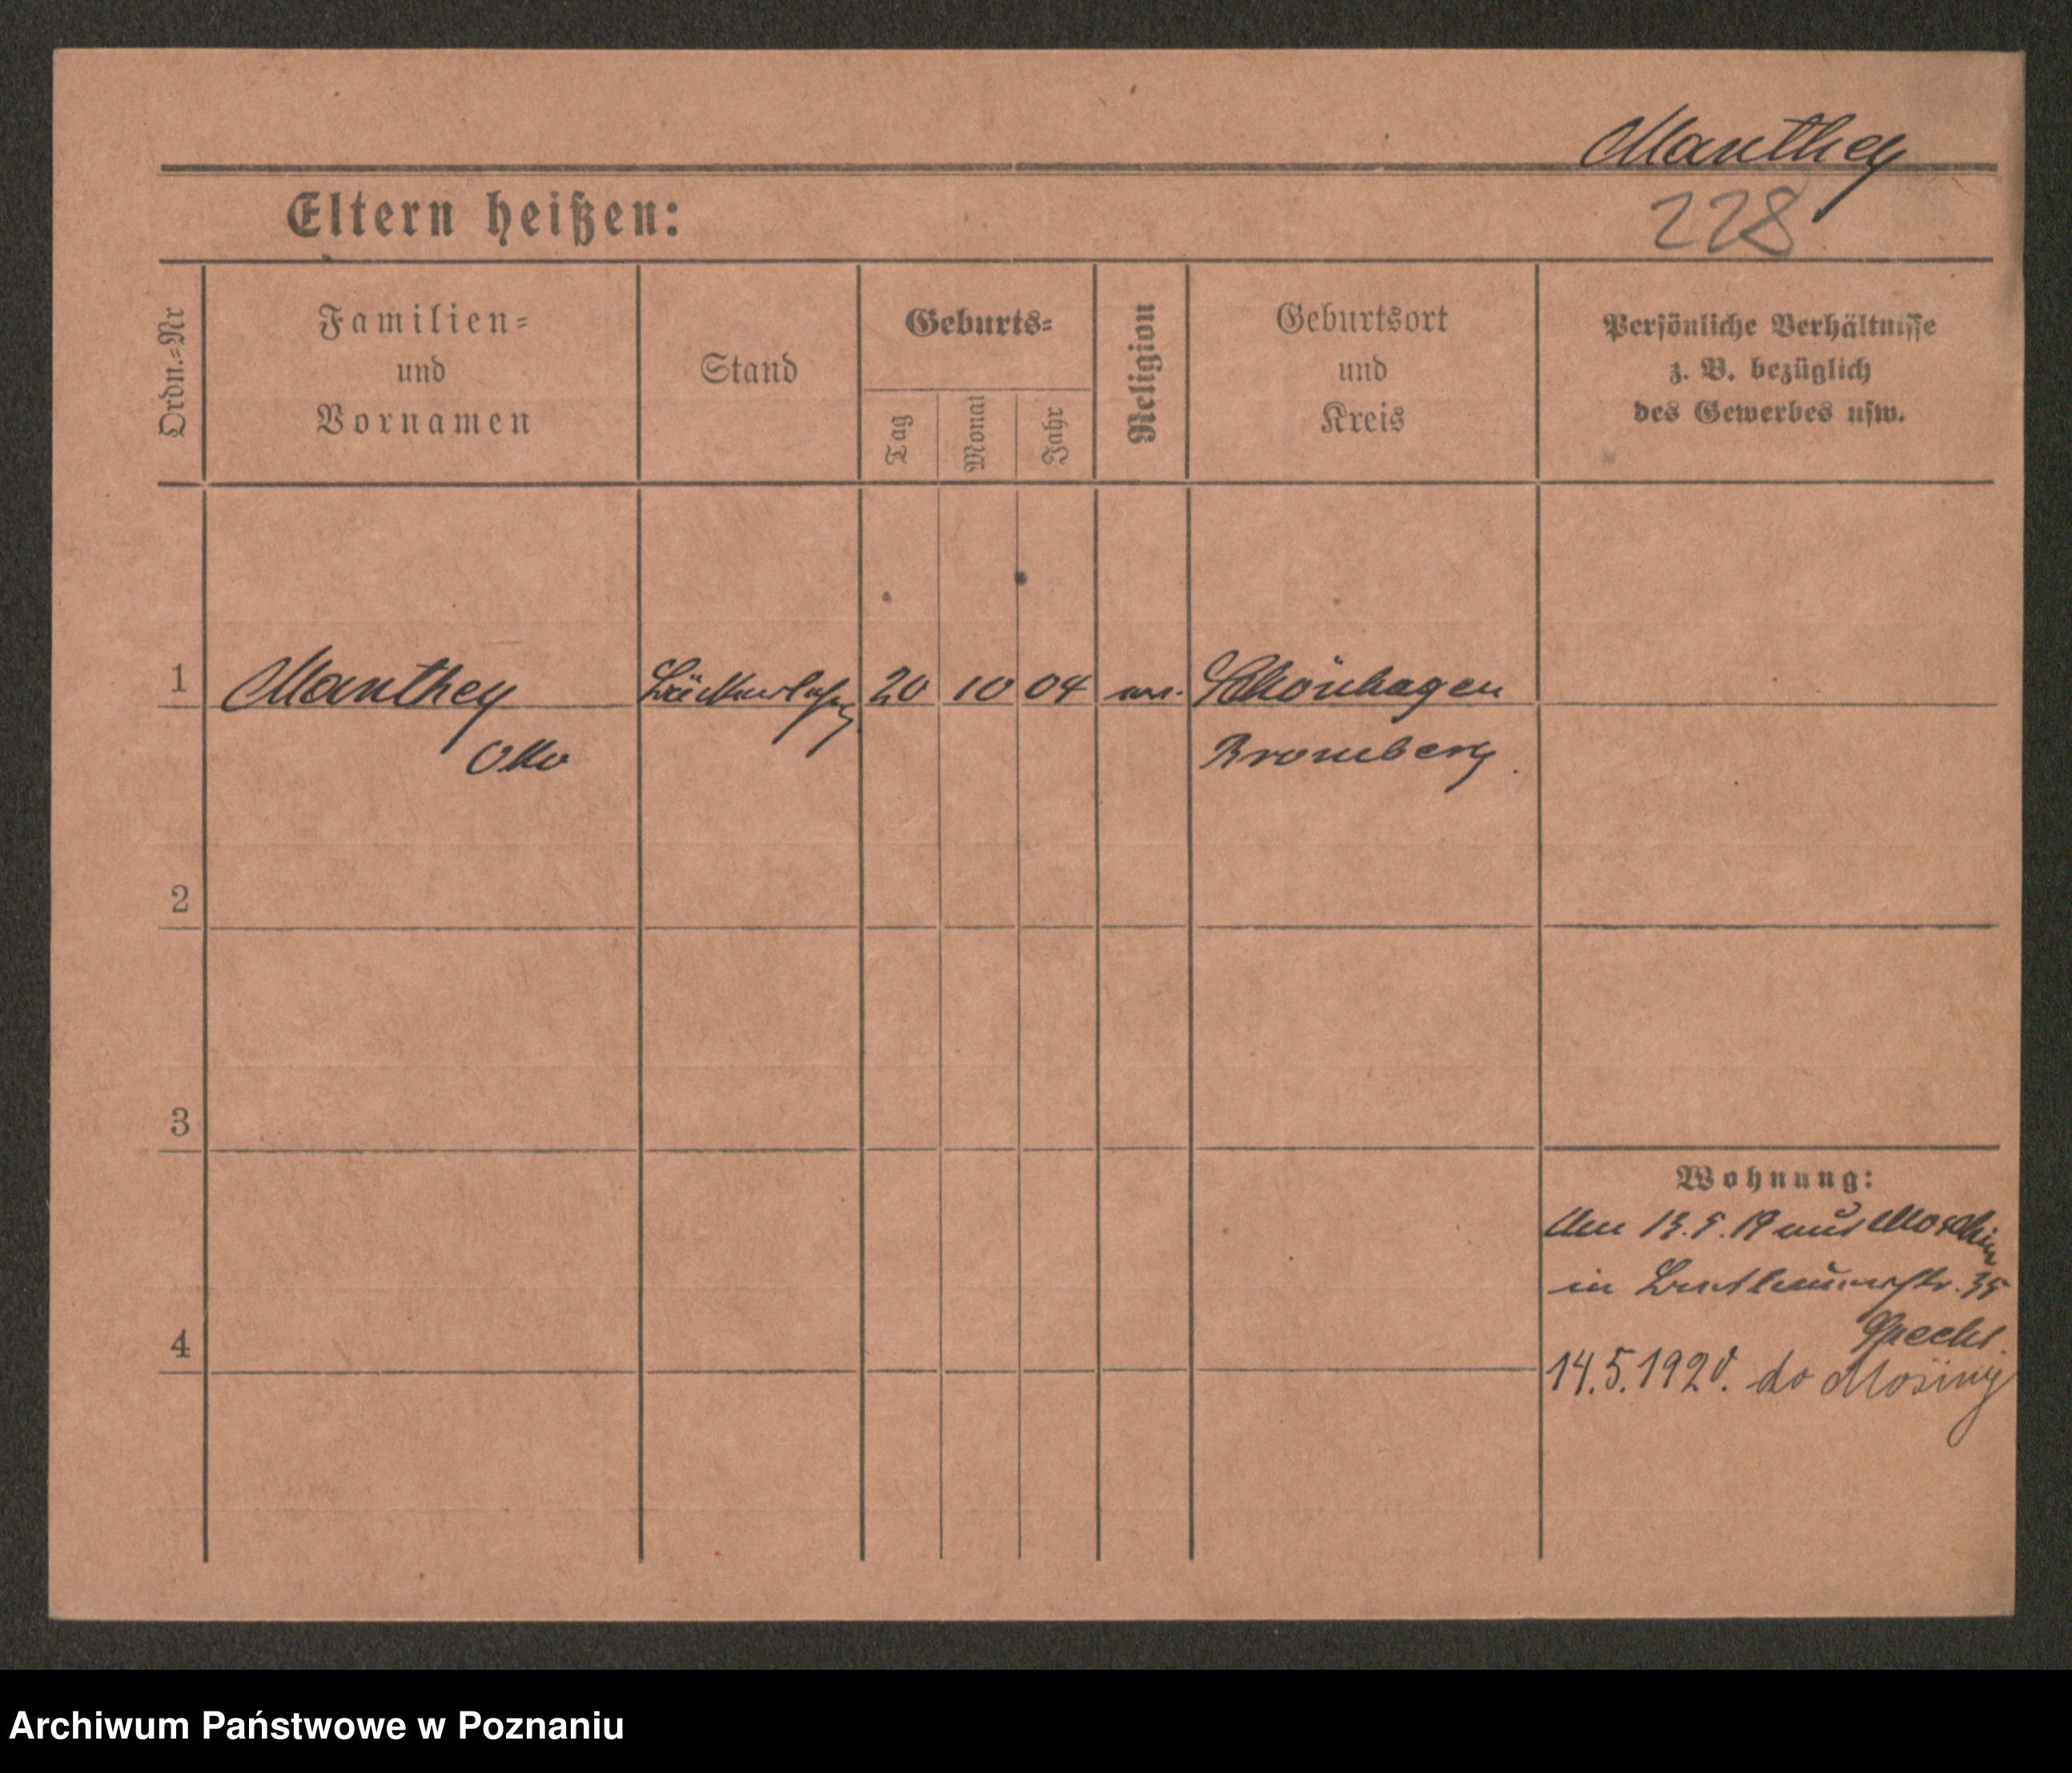 Manthey
228
Eltern heißen:
Ordn.=Nr
Familien=
und
Vornamen
Stand
Geburts=
Tag
Monat
Jahr
Religion
Geburtsort
und
Kreis
Persönliche Verhältnisse
z. B. bezüglich
des Gewerbes usw.
1 Manthey 20 10 04 Schönhagen
Otto Bromberg.
2
3
Wohnung:
13.5.19 aus Moschin
in 35
Specht
4
14.5.1920. do Mosiny
Archiwum Państwowe w Poznaniu